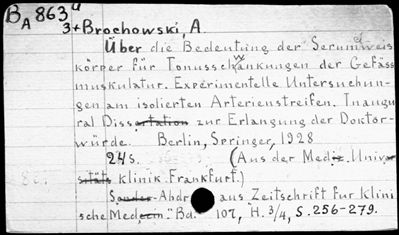 BA 863a
3+Brochowski, A.
Über die Bedeutung der Serumeiweis
körper für Tonusschwankungen der Gefäss
muskulatur. Experimentelle Untersuchun-
gen am isolierten Arterienstreifen. Inaugu
ral Dissertation zur Erlangung der Doktor-
würde. Berlin, Springer, 1928
24 S. (Aus der Mediz. Univer
sitäts klinik Frankfurt.)
Sonder-Abdr aus Zeitschrift für Klini
sche Medezin. Bd. 107, H. 3/4, S. 256-279.